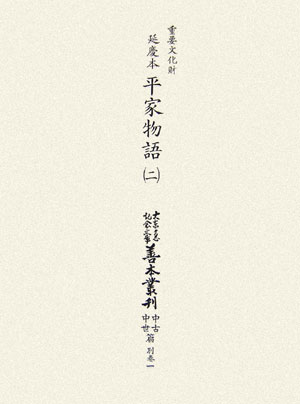 重要文化財
延慶本 平家物語 ㈡
大東急
記念文庫
善本叢刊
中古
中世
篇 別巻一